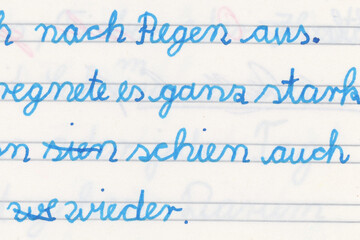 h nach Regen aus.
regnete es ganz stark
n sien schien auch
zus wieder.